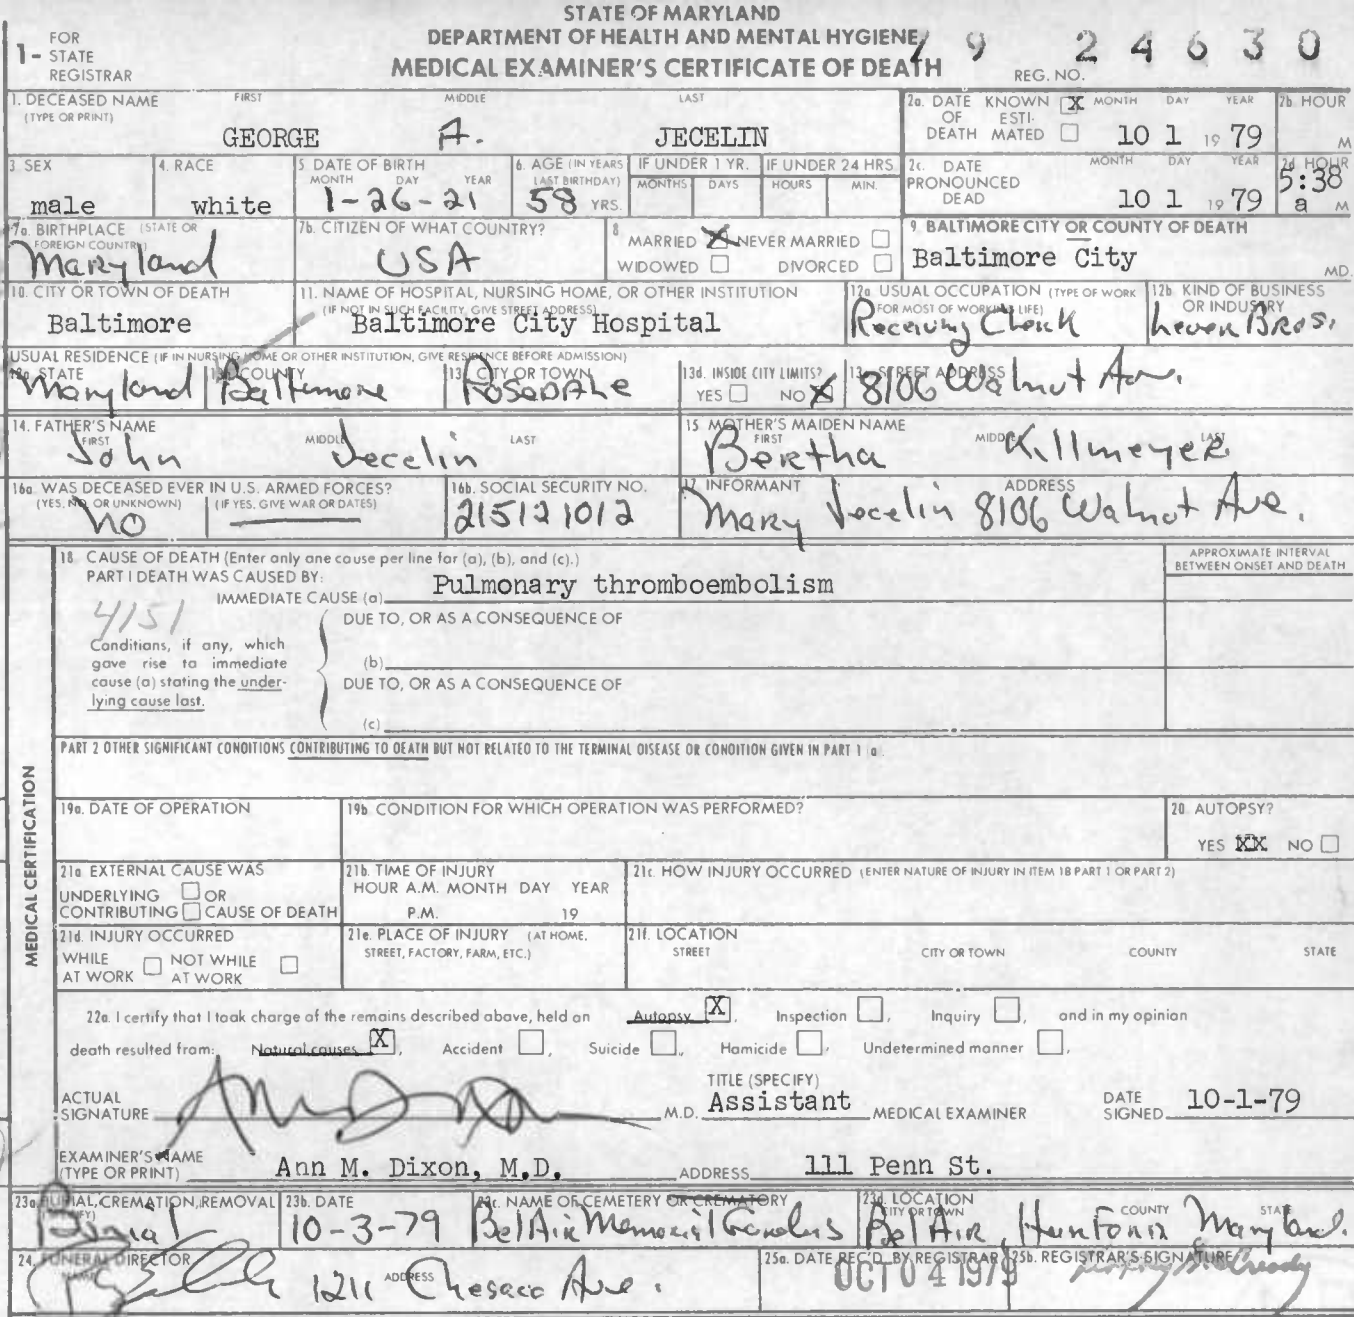 STATE OF MARYLAND
DEPARTMENT OF HEALTH AND MENTAL HYGIENE
MEDICAL EXAMINER'S CERTIFICATE OF DEATH
1- FOR STATE REGISTRAR
REG. NO. 79 24630
1. DECEASED NAME (TYPE OR PRINT) FIRST MIDDLE LAST
GEORGE A. JECELIN
2a. DATE OF DEATH KNOWN X ESTIMATED MONTH DAY YEAR 10 1 1979
2b. HOUR M
3 SEX male
4. RACE white
5 DATE OF BIRTH MONTH DAY YEAR 1-26-21
6. AGE (IN YEARS LAST BIRTHDAY) 58 YRS.
IF UNDER 1 YR. MONTHS DAYS
IF UNDER 24 HRS HOURS MIN.
2c. DATE PRONOUNCED DEAD MONTH DAY YEAR 10 1 1979
2d HOUR 5:38 a M
7a. BIRTHPLACE (STATE OR FOREIGN COUNTRY) Maryland
7b. CITIZEN OF WHAT COUNTRY? USA
8 MARRIED X NEVER MARRIED
WIDOWED DIVORCED
9. BALTIMORE CITY OR COUNTY OF DEATH
Baltimore City MD.
10. CITY OR TOWN OF DEATH
Baltimore
11. NAME OF HOSPITAL, NURSING HOME, OR OTHER INSTITUTION
(IF NOT IN SUCH FACILITY, GIVE STREET ADDRESS)
Baltimore City Hospital
12a. USUAL OCCUPATION (TYPE OF WORK FOR MOST OF WORKING LIFE)
Receiving Clerk
12b. KIND OF BUSINESS OR INDUSTRY
Lever Bros.
USUAL RESIDENCE (IF IN NURSING HOME OR OTHER INSTITUTION, GIVE RESIDENCE BEFORE ADMISSION)
13a. STATE Maryland
13b. COUNTY Baltimore
13c. CITY OR TOWN Rosedale
13d. INSIDE CITY LIMITS? YES NO X
13e. STREET ADDRESS 8106 Walnut Ave.
14. FATHER'S NAME FIRST MIDDLE LAST
John Jecelin
15 MOTHER'S MAIDEN NAME FIRST MIDDLE LAST
Bertha Killmeyer
16a. WAS DECEASED EVER IN U.S. ARMED FORCES?
(YES, NO, OR UNKNOWN) (IF YES, GIVE WAR OR DATES)
NO
16b. SOCIAL SECURITY NO.
215121012
17. INFORMANT ADDRESS
Mary Jecelin 8106 Walnut Ave.
MEDICAL CERTIFICATION
18 CAUSE OF DEATH (Enter only one cause per line for (a), (b), and (c).)
APPROXIMATE INTERVAL BETWEEN ONSET AND DEATH
PART I DEATH WAS CAUSED BY:
IMMEDIATE CAUSE (a) Pulmonary thromboembolism
4151
DUE TO, OR AS A CONSEQUENCE OF
Conditions, if any, which gave rise to immediate cause (a) stating the underlying cause last.
(b)
DUE TO, OR AS A CONSEQUENCE OF
(c)
PART 2 OTHER SIGNIFICANT CONDITIONS CONTRIBUTING TO DEATH BUT NOT RELATED TO THE TERMINAL DISEASE OR CONDITION GIVEN IN PART 1 (a).
19a. DATE OF OPERATION
19b CONDITION FOR WHICH OPERATION WAS PERFORMED?
20 AUTOPSY?
YES XX NO
21a EXTERNAL CAUSE WAS
UNDERLYING OR
CONTRIBUTING CAUSE OF DEATH
21b. TIME OF INJURY
HOUR A.M. MONTH DAY YEAR
P.M. 19
21c. HOW INJURY OCCURRED (ENTER NATURE OF INJURY IN ITEM 18 PART 1 OR PART 2)
21d. INJURY OCCURRED
WHILE AT WORK NOT WHILE AT WORK
21e. PLACE OF INJURY (AT HOME, STREET, FACTORY, FARM, ETC.)
21f. LOCATION
STREET CITY OR TOWN COUNTY STATE
22a. I certify that I took charge of the remains described above, held an Autopsy X, Inspection, Inquiry, and in my opinion
death resulted from: Natural causes X, Accident, Suicide, Homicide, Undetermined manner,
ACTUAL SIGNATURE Ann Dixon M.D.
TITLE (SPECIFY) Assistant MEDICAL EXAMINER
DATE SIGNED 10-1-79
EXAMINER'S NAME (TYPE OR PRINT) Ann M. Dixon, M.D. ADDRESS 111 Penn St.
23a. BURIAL, CREMATION, REMOVAL
Burial
23b. DATE
10-3-79
23c. NAME OF CEMETERY OR CREMATORY
Bel Air Memorial Gardens
23d. LOCATION CITY OR TOWN COUNTY STATE
Bel Air, Maryland.
24. FUNERAL DIRECTOR NAME ADDRESS
1211 Chesaco Ave.
25a. DATE REC'D. BY REGISTRAR
OCT 04 1979
25b. REGISTRAR'S SIGNATURE